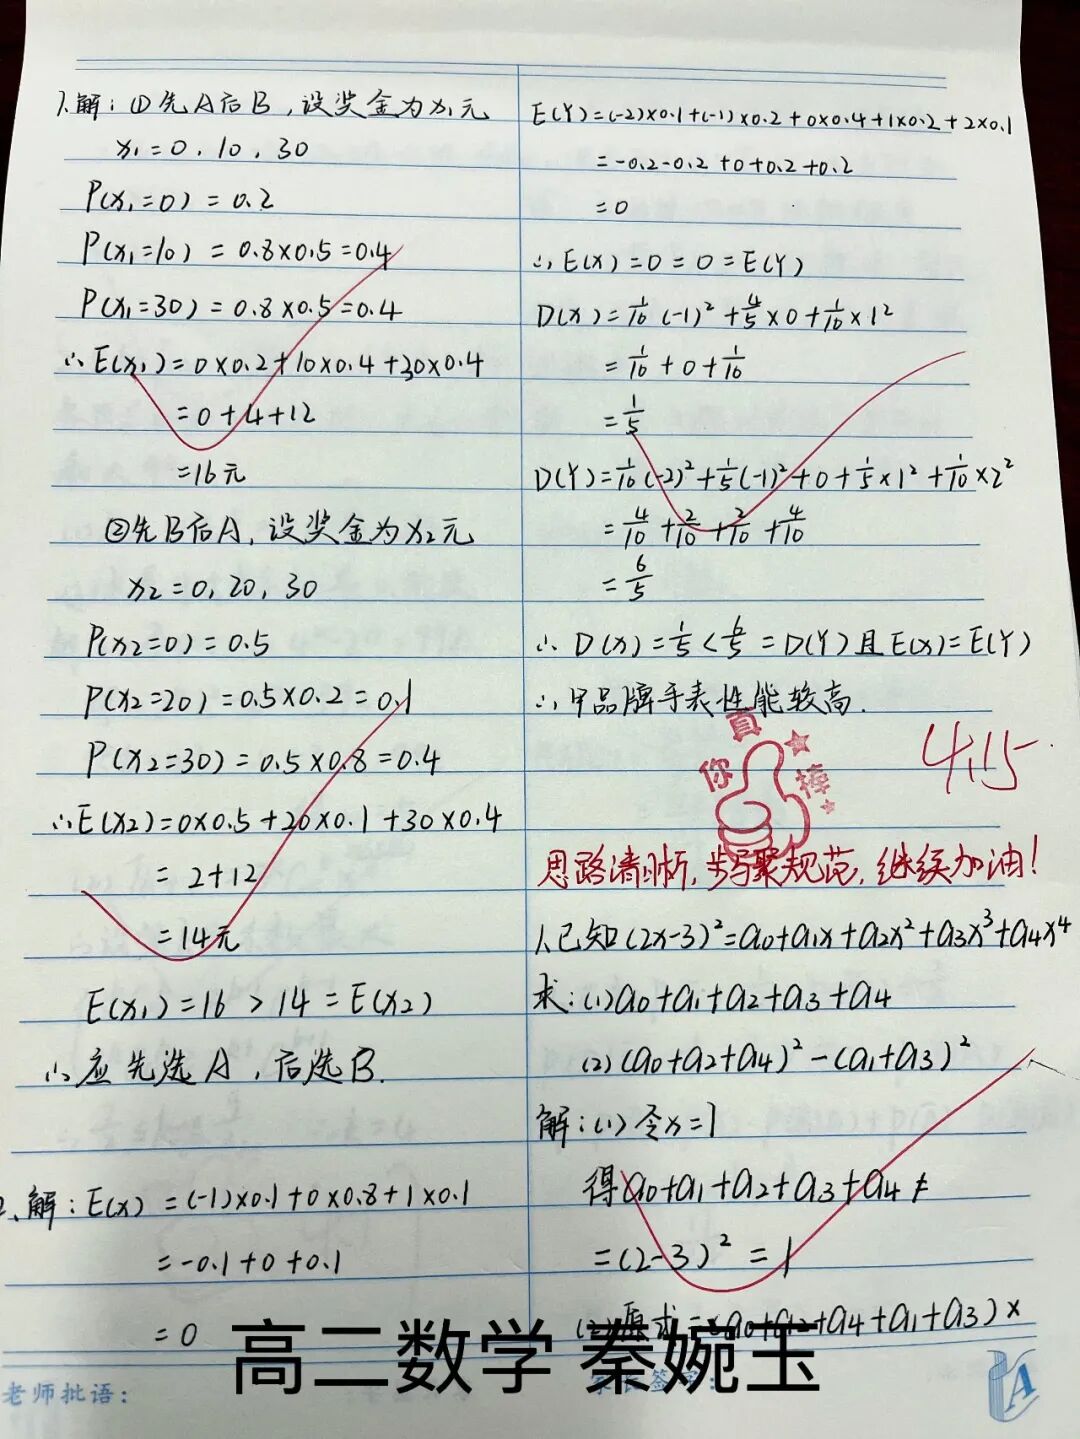 1.解：①先A后B，设奖金为x₁元
x₁=0，10，30
P(x₁=0)=0.2
P(x₁=10)=0.8×0.5=0.4
P(x₁=30)=0.8×0.5=0.4
∴E(x₁)=0×0.2+10×0.4+30×0.4
=0+4+12
=16元
②先B后A，设奖金为x₂元
x₂=0，20，30
P(x₂=0)=0.5
P(x₂=20)=0.5×0.2=0.1
P(x₂=30)=0.5×0.8=0.4
∴E(x₂)=0×0.5+20×0.1+30×0.4
=2+12
=14元
E(x₁)=16>14=E(x₂)
∴应先选A，后选B.
2、解：E(x)=(-1)×0.1+0×0.8+1×0.1
=-0.1+0+0.1
=0
E(Y)=(-2)×0.1+(-1)×0.2+0×0.4+1×0.2+2×0.1
=-0.2-0.2+0+0.2+0.2
=0
∴E(x)=0=0=E(Y)
D(x)=1/10(-1)²+4/5×0+1/10×1²
=1/10+0+1/10
=1/5
D(Y)=1/10(-2)²+1/5(-1)²+0+1/5×1²+1/10×2²
=4/10+2/10+2/10+4/10
=6/5
∴D(x)=1/5<6/5=D(Y)且E(x)=E(Y)
∴甲品牌手表性能较高.
你真棒
4.15
思路清晰，步骤规范，继续加油！
1、已知(2x-3)²=a₀+a₁x+a₂x²+a₃x³+a₄x⁴
求：(1)a₀+a₁+a₂+a₃+a₄
(2)(a₀+a₂+a₄)²-(a₁+a₃)²
解：(1)令x=1
得a₀+a₁+a₂+a₃+a₄
=(2-3)²=1
(2)原式=(a₀+a₂+a₄+a₁+a₃)×
高二数学 秦婉玉
老师批语：
A